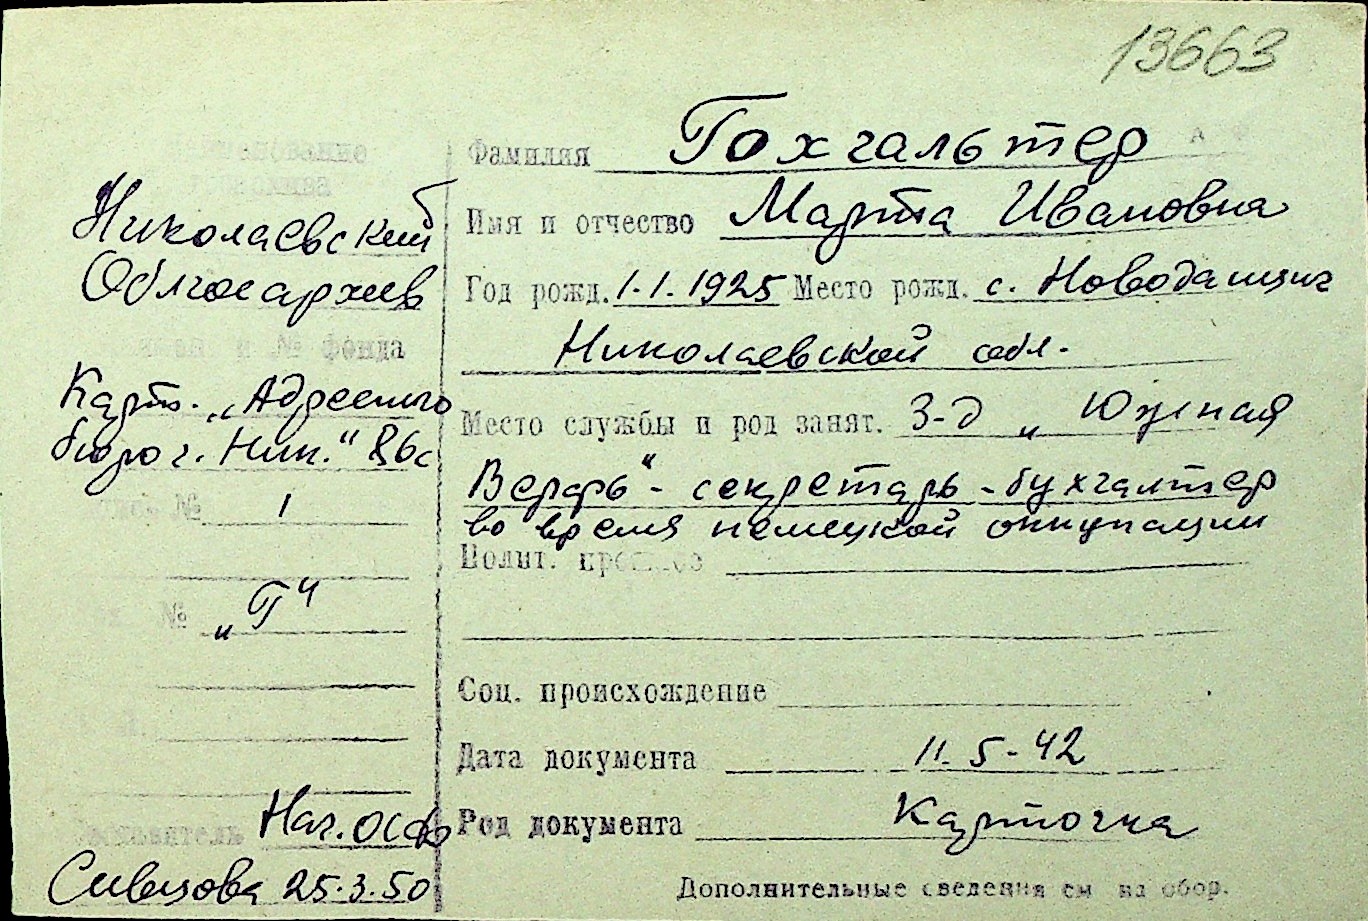 13663
Фамилия Гохгальтер
Имя и отчество Марта Ивановна
Год рожд. 1.1.1925 Место рожд. с. Новоданциг
Николаевской обл.
Место службы и род занят. З-д „Южная
Верфь" - секретарь-бухгалтер
во время немецкой оккупации
Полит.
Соц. происхождение
Дата документа 11.5-42
Род документа Карточка
Дополнительные сведения см на обор.
Николаевский
Облгосархив
и № фонда
Карт. „Адресного
бюро г. Ник."
№ 1
№ „Г"
Нач. ОСФ
25.3.50